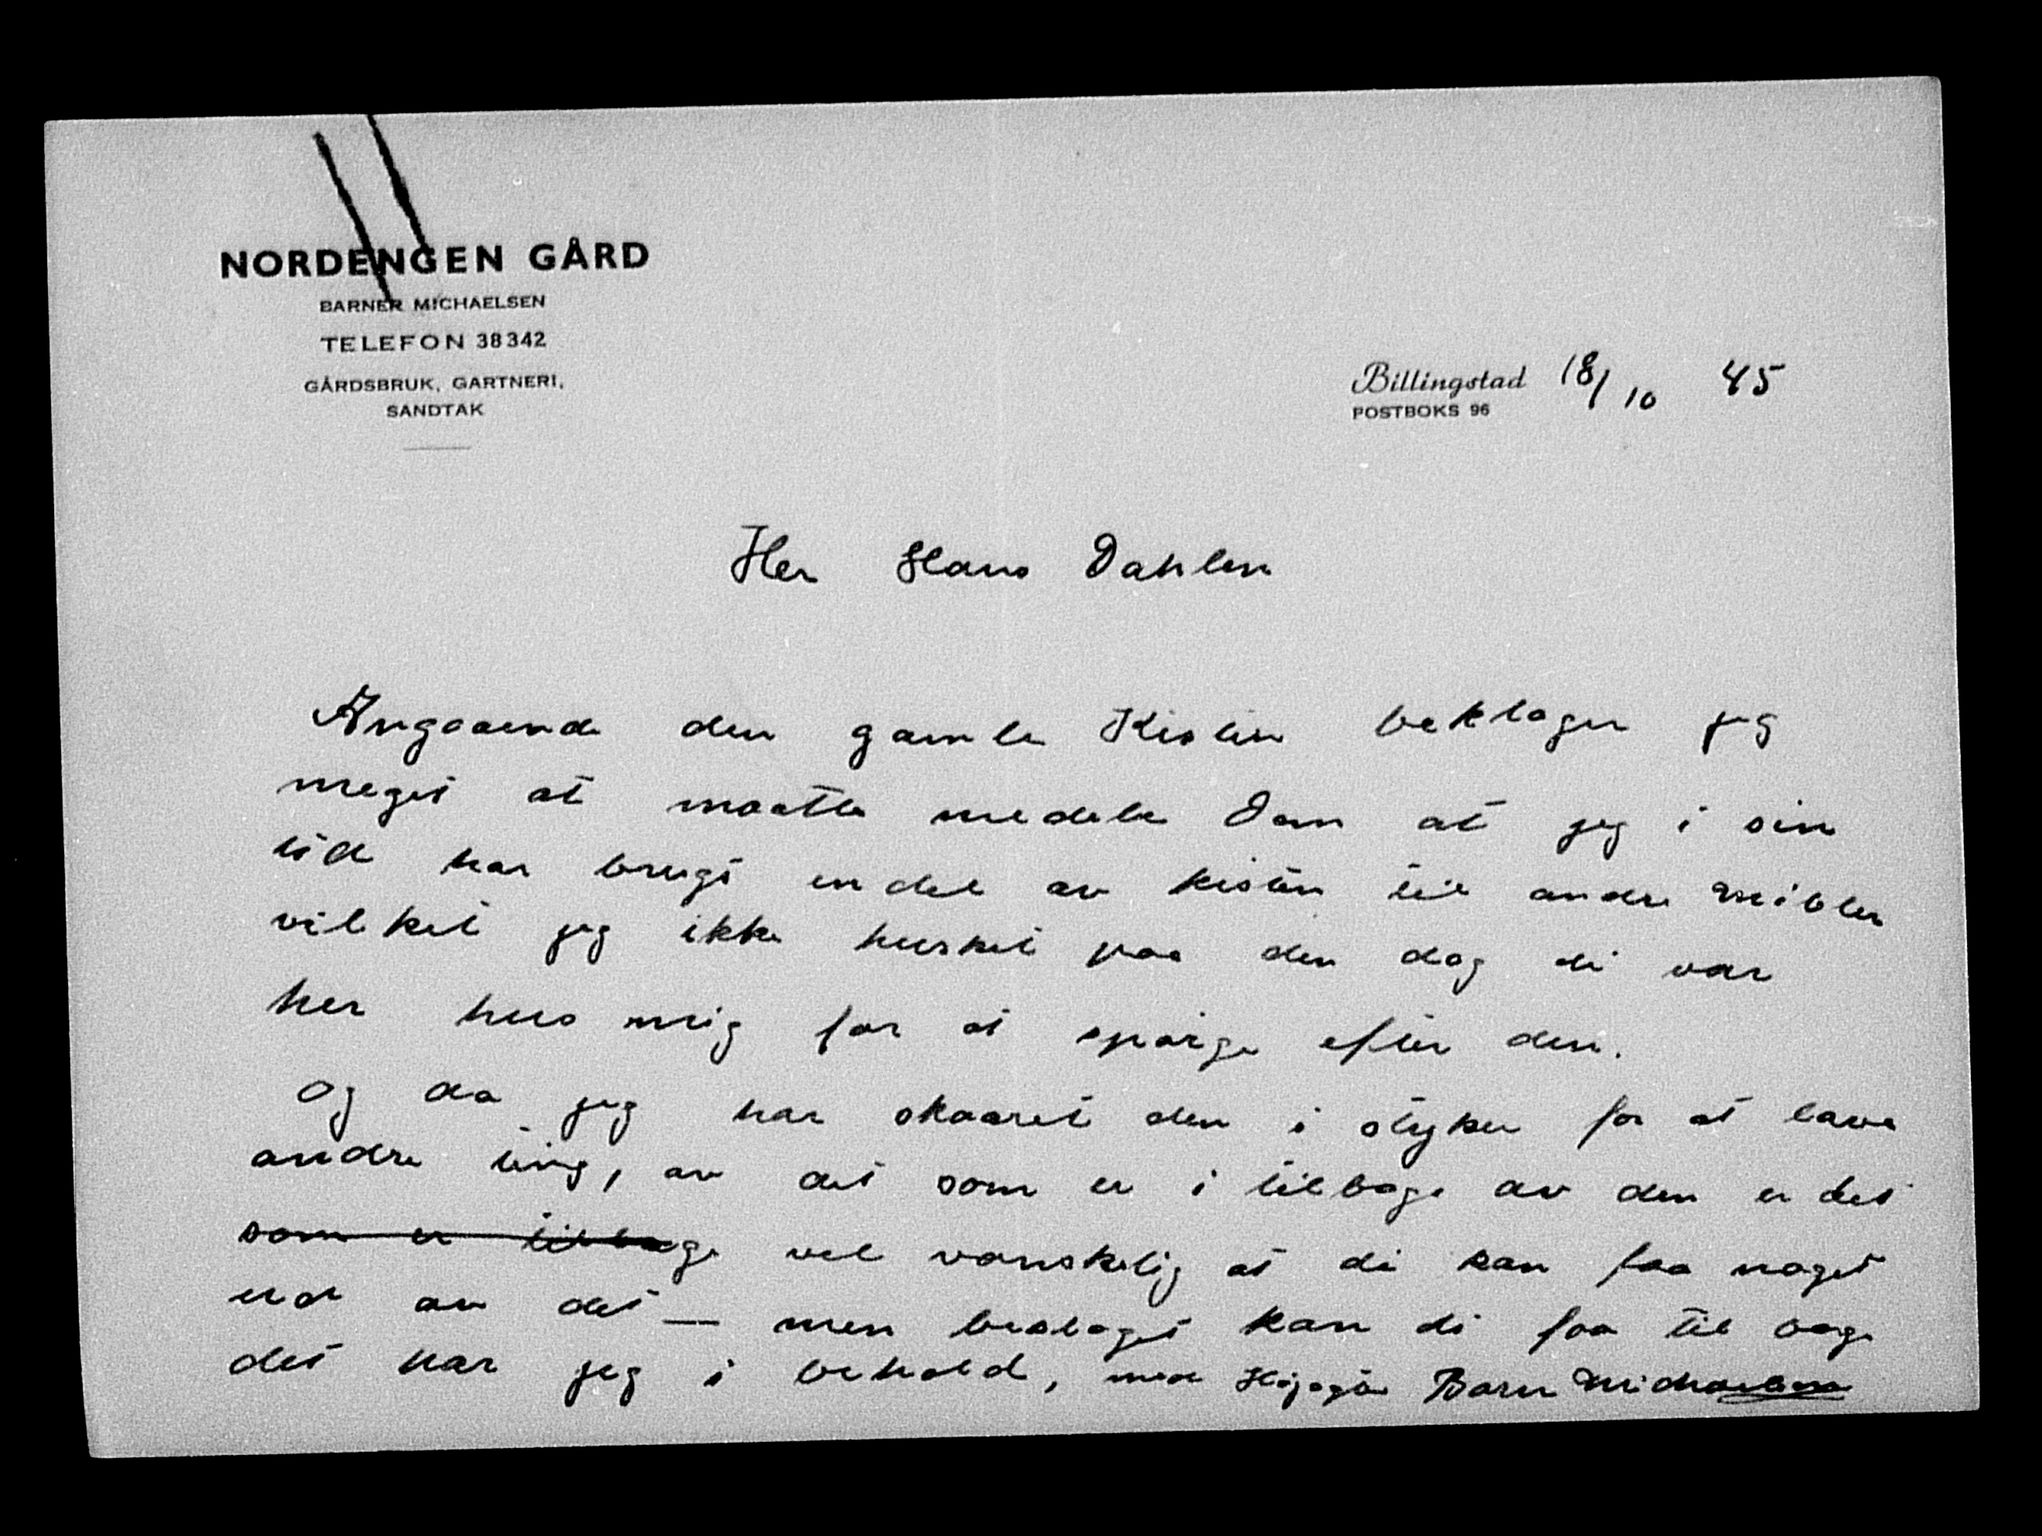 NORDENGEN GÅRD
BARNER MICHAELSEN
TELEFON 38342
GÅRDSBRUK, GARTNERI,
SANDTAK
Billingstad 18/10 45
POSTBOKS 96
Her Hans Dahlen
Angaaende den gamle Kisten beklager jeg
meget at maatte medele Dem at jeg i sin
tid har brugt endel av kisten til andre Mibler
vilket jeg ikke husket paa den dag di var
her hus mig for at spørge efter den.
Og da jeg har skaaret den i styker for at lave
andre ting, av det som er i tilbage av den er det
som er tilbage vel vanskelig at di kan faa noget
ud av det — men beslaget kan di faa til bage
det har jeg i behold, med Barn Michaelsen